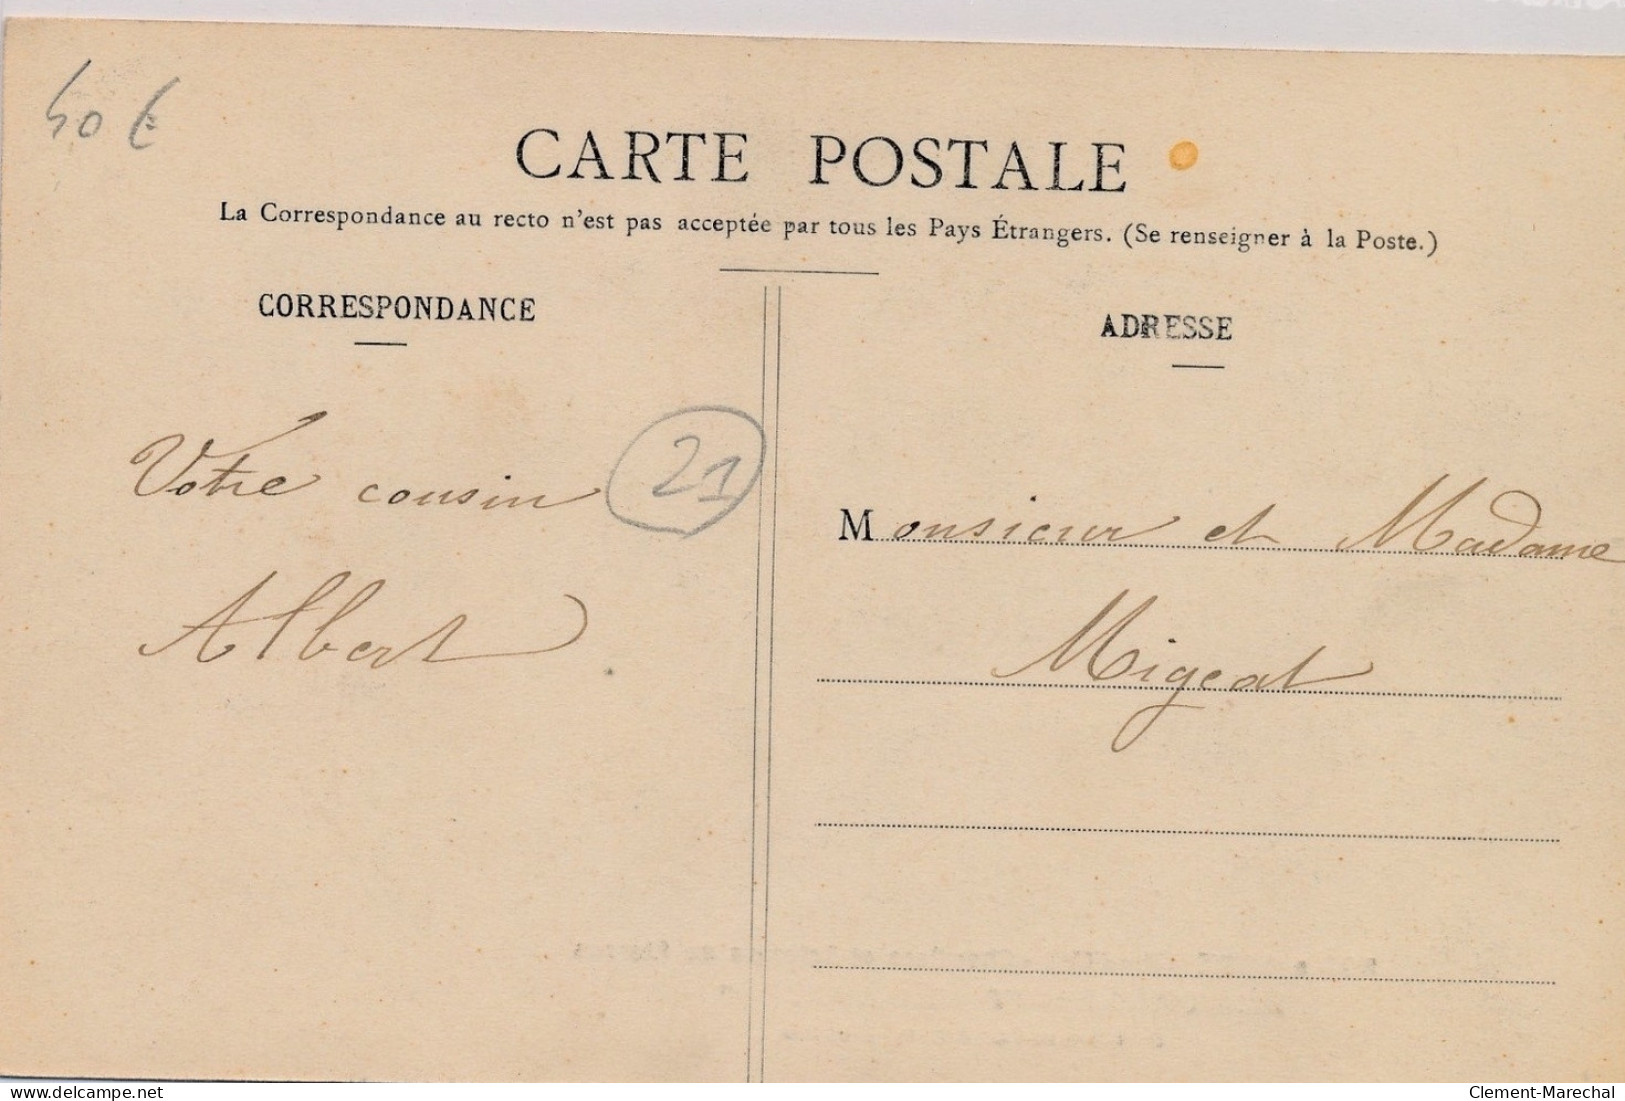 40 €
CARTE POSTALE
La Correspondance au recto n'est pas acceptée par tous les Pays Étrangers. (Se renseigner à la Poste.)
CORRESPONDANCE
ADRESSE
Votre cousin
21
Albert
Monsieur et Madame
Migeat
delcampe.net
Clement-Marechal